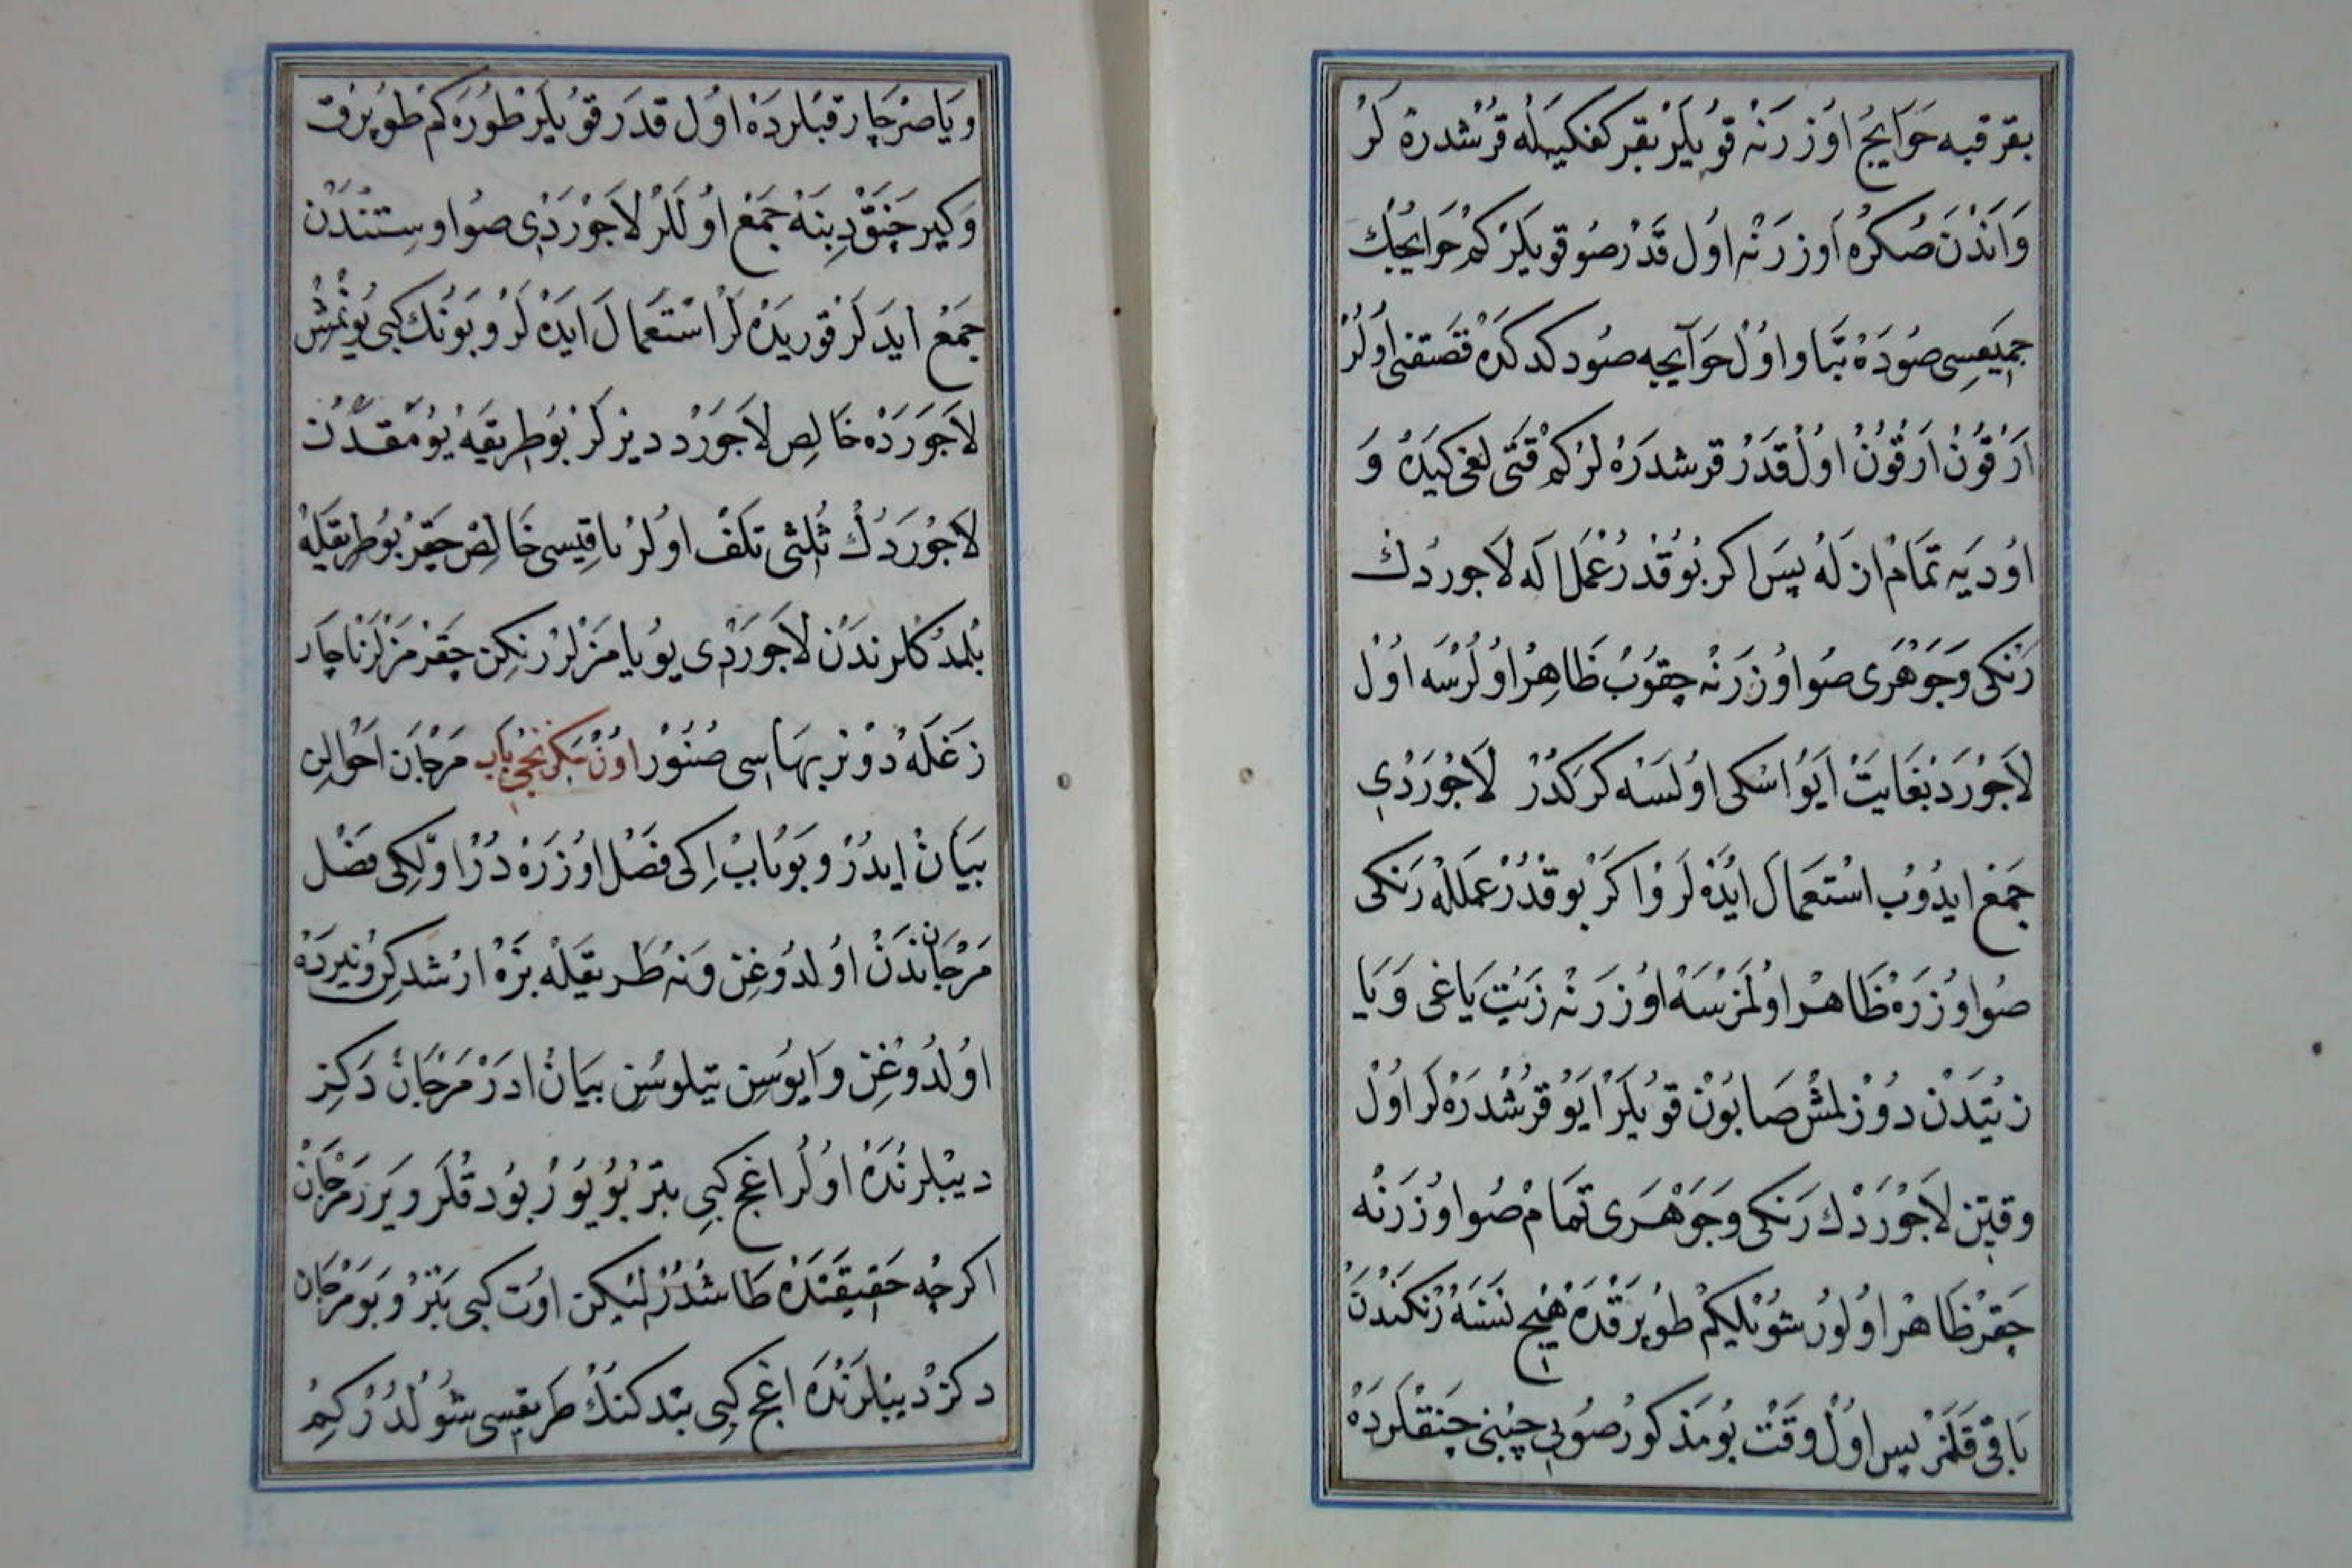 بقر قبه حَوَايِجُ اوُزرَنَه قوُيلَرْ بقر كفكيرله قرُشدرهْ لَرْ
وَاندَنَ صُكرُه اوزرَنَه اوُل قَدَرْ صُو قويلَرْ كمْ حَوايجُكْ
جمِيعِسى صوُدَهْ بتا و اوُل حَوآيجه صُود كدكدَه قصَتقنى اوُلُرْ
ارَقوُنْ ارَقوُنْ اوُلْ قدَرْ قرشدرَهْ لَرْ كمْ قتَى لغى كيدَهْ وَ
اوُديَه تمَامْ ازلَهْ پسَ اكر بوُ قدُرْ عمَلِ اله لاَجوردُكْ
رَنكى وَجَوْهَرى صوُ اوُزرَنَه چِقوُبْ ظَاهِرْ اوُلُرْسَه اوُلْ
لاَجوْرد بغَايَتْ ايوُ اسْكى اوُلسَه كرَكدُرْ لاَجوْردِى
جمْع ايدوُبْ اسْتعمَال ايدَهْ لَرْ وَاكَرْ بوُ قدُرْ عمللهْ رَنكى
صُو اوُزرَهْ ظَاهرْ اوُلمزْسَه اوُزرَنَه زيَتْ يَاغى وَيَا
زيتدَنْ دوُزلمشْ صَابوُنْ قوُيلَرْ ايوُ قرُشدرَهْ لَرْ اوُلْ
وقتِن لاَجوْردْكْ رَنكى وجَوْهَرى تمَامْ صُو اوُزرَنَه
چقرْ ظَاهرْ اوُلوُرْ شوُيليكمْ طوُپرَقدَهْ هيچ نسَنَهْ رَنكندَنْ
بَاقى قلَمزْ پس اوُلْ وقتْ بوُ مَذكوُرْ صوُيى چينى چنقلَردَهْ
وَيَا صرْچَا رقبلردَهْ اوُل قدَر قوُيلَرْ طوُرَهْ كمْ طوُپرَق
وَكيرْ چنَقْ دِبنَهْ جمْع اوُلَلرْ لاَجوْردِى صُو اوستندَنْ
جمْع ايدَلرْ قوريدَهْ لَرْ اسْتعمَال ايدَهْ لَرْ وبوُنُك كبى يوُنمشْ
لاَجوَردَهْ خَالِص لاَجوَرْد ديرلَرْ بوُ طريقَهْ يوُمقدَنْ
لاَجوْردُكْ ثُلثى تَلَفْ اوُلُرْ باقيسى خَالِصْ چقَرْ بوُ طريقلَهْ
بلمدُكلرندَنْ لاَجوَرْدى يوُيَامزلَرْ رنكِن چقَرمَزلَرْ نَاچَار
زَغَلهْ دوُنر بهَاسى صُنوُرْ اوُنْ سكزنجى بَابْ مَرجَانْ احْوالِن
بيَانْ ايدُرْ وبوُ بَابْ اِكى فصْل اوُزرَهْ دُرْ اوَّلكى فصْل
مَرجَانْ نَدَنْ اوُلدوُغِن وَنَهْ طَريقلَه بزَهْ ارُشدكِن ونيردَهْ
اوُلدُوغِنْ وَايوُسِن يتلوسُن بيَانْ ادَرْ مَرجَانْ دَكِز
ديبلرندَهْ اوُلُرْ اغج كبى بترْ بوُيوُرْ بوُدقلَرْ ويَرر مَرجَانْ
اكرچه حَقيقتدَهْ طَاشدُرْ ليكن اوُت كبى بَتَرْ وبوُ مَرجَانْ
دكزْ ديبلرَندَهْ اغج كبى بتدكنكْ طَريقِسى شوُلدُرْ كِمْ